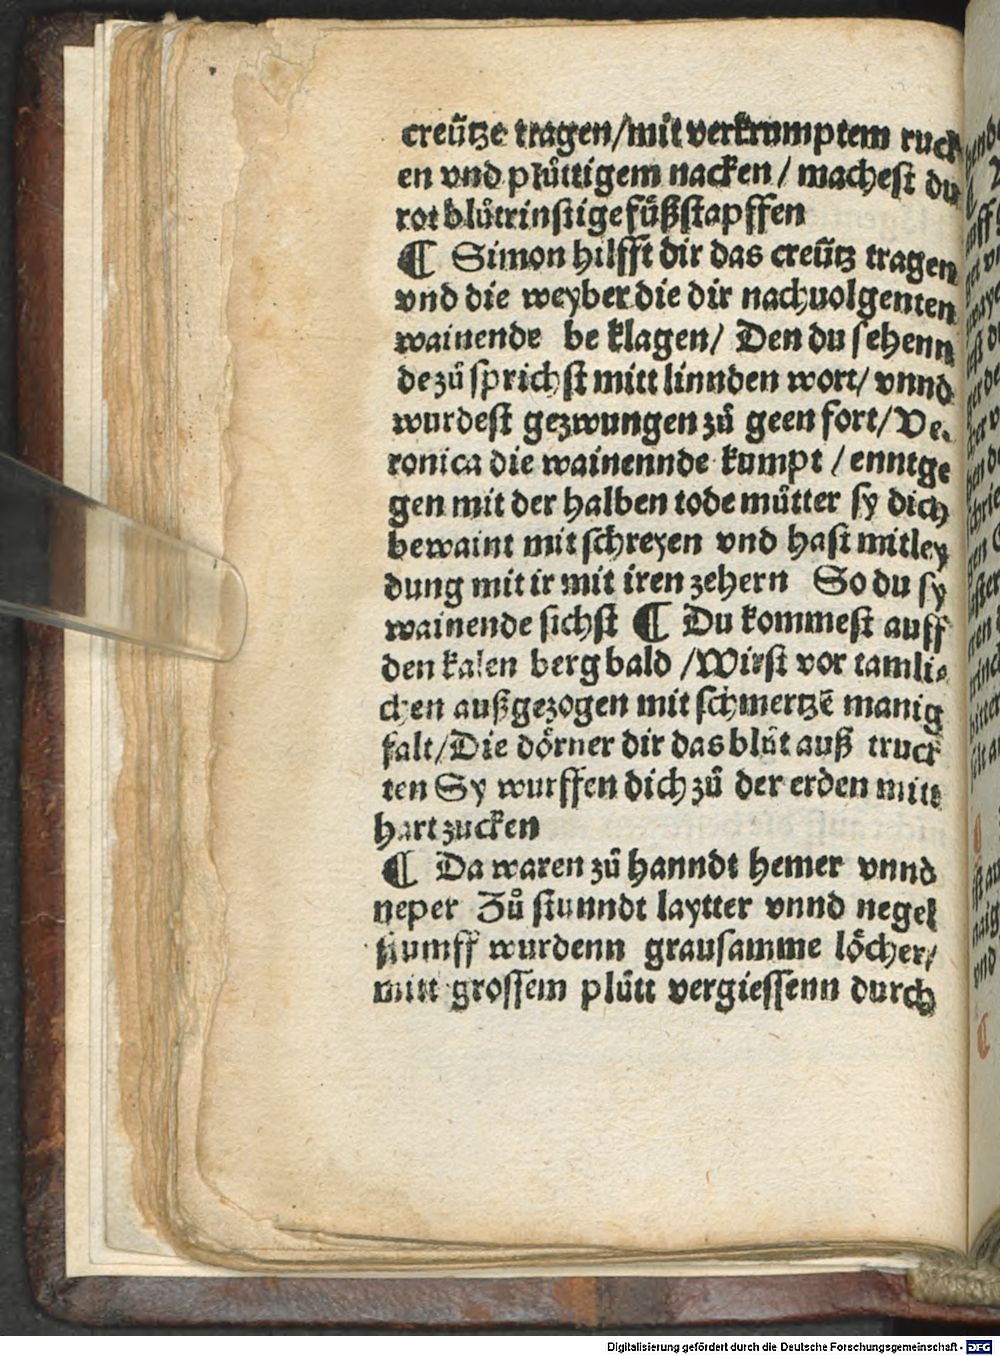 creütze tragen/mit verkrumptem ruck
en vnd plüttigem nacken / machest du
rot blůtrinstige fůßstapffen
¶ Simon hilfft dir das creütz tragen
vnd die weyber die dir nachuolgenten
wainende be klagen/ Den du sehenn
de zů sprichst mitt linnden wort/ vnnd
wurdest gezwungen zů geen fort/ Ve-
ronica die wainennde kumpt / enntge
gen mit der halben tode můtter sy dich
bewaint mit schreyen vnd hast mitley
dung mit ir mit iren zehern So du sy
wainende sichst ¶ Du kommest auff
den kalen berg bald /Wirst vor tamli-
chen außgezogen mit schmertzē manig
falt/Die dörner dir das blůt auß truck
ten Sy wurffen dich zů der erden mitt
hart zucken
¶ Da waren zů hanndt hemer vnnd
neper Zů stunndt laytter vnnd negel
stumff wurdenn grausamme löcher/
mitt grossem plůtt vergiessenn durch
Digitalisierung gefördert durch die Deutsche Forschungsgemeinschaft - DFG